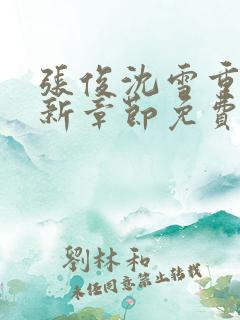 張俊沈雪重
新章節免費
劉林和
未经同意禁止转载